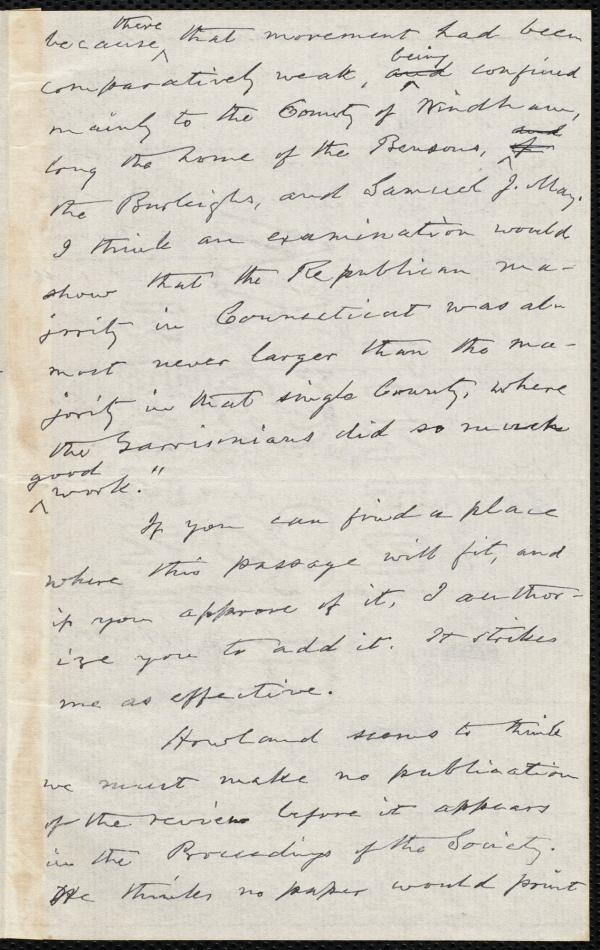 there
because ‸ that movement had been
being
comparatively weak, and ‸ confined
mainly to the County of Windham,
and
long the home of the Bensons, of ‸
the Burleighs, and Samuel J. May.
I think an examination would
show that the Republican ma-
jority in Connecticut was al-
most never larger than the ma-
jority in that single County, where
the Garrisonians did so much
good
‸ work."
If you can find a place
where this passage will fit, and
if you approve of it, I author-
ize you to add it. It strikes
me as effective.
Howland seems to think
we must make no publication
of the review before it appears
in the Proceedings of the Society.
He thinks no paper would print